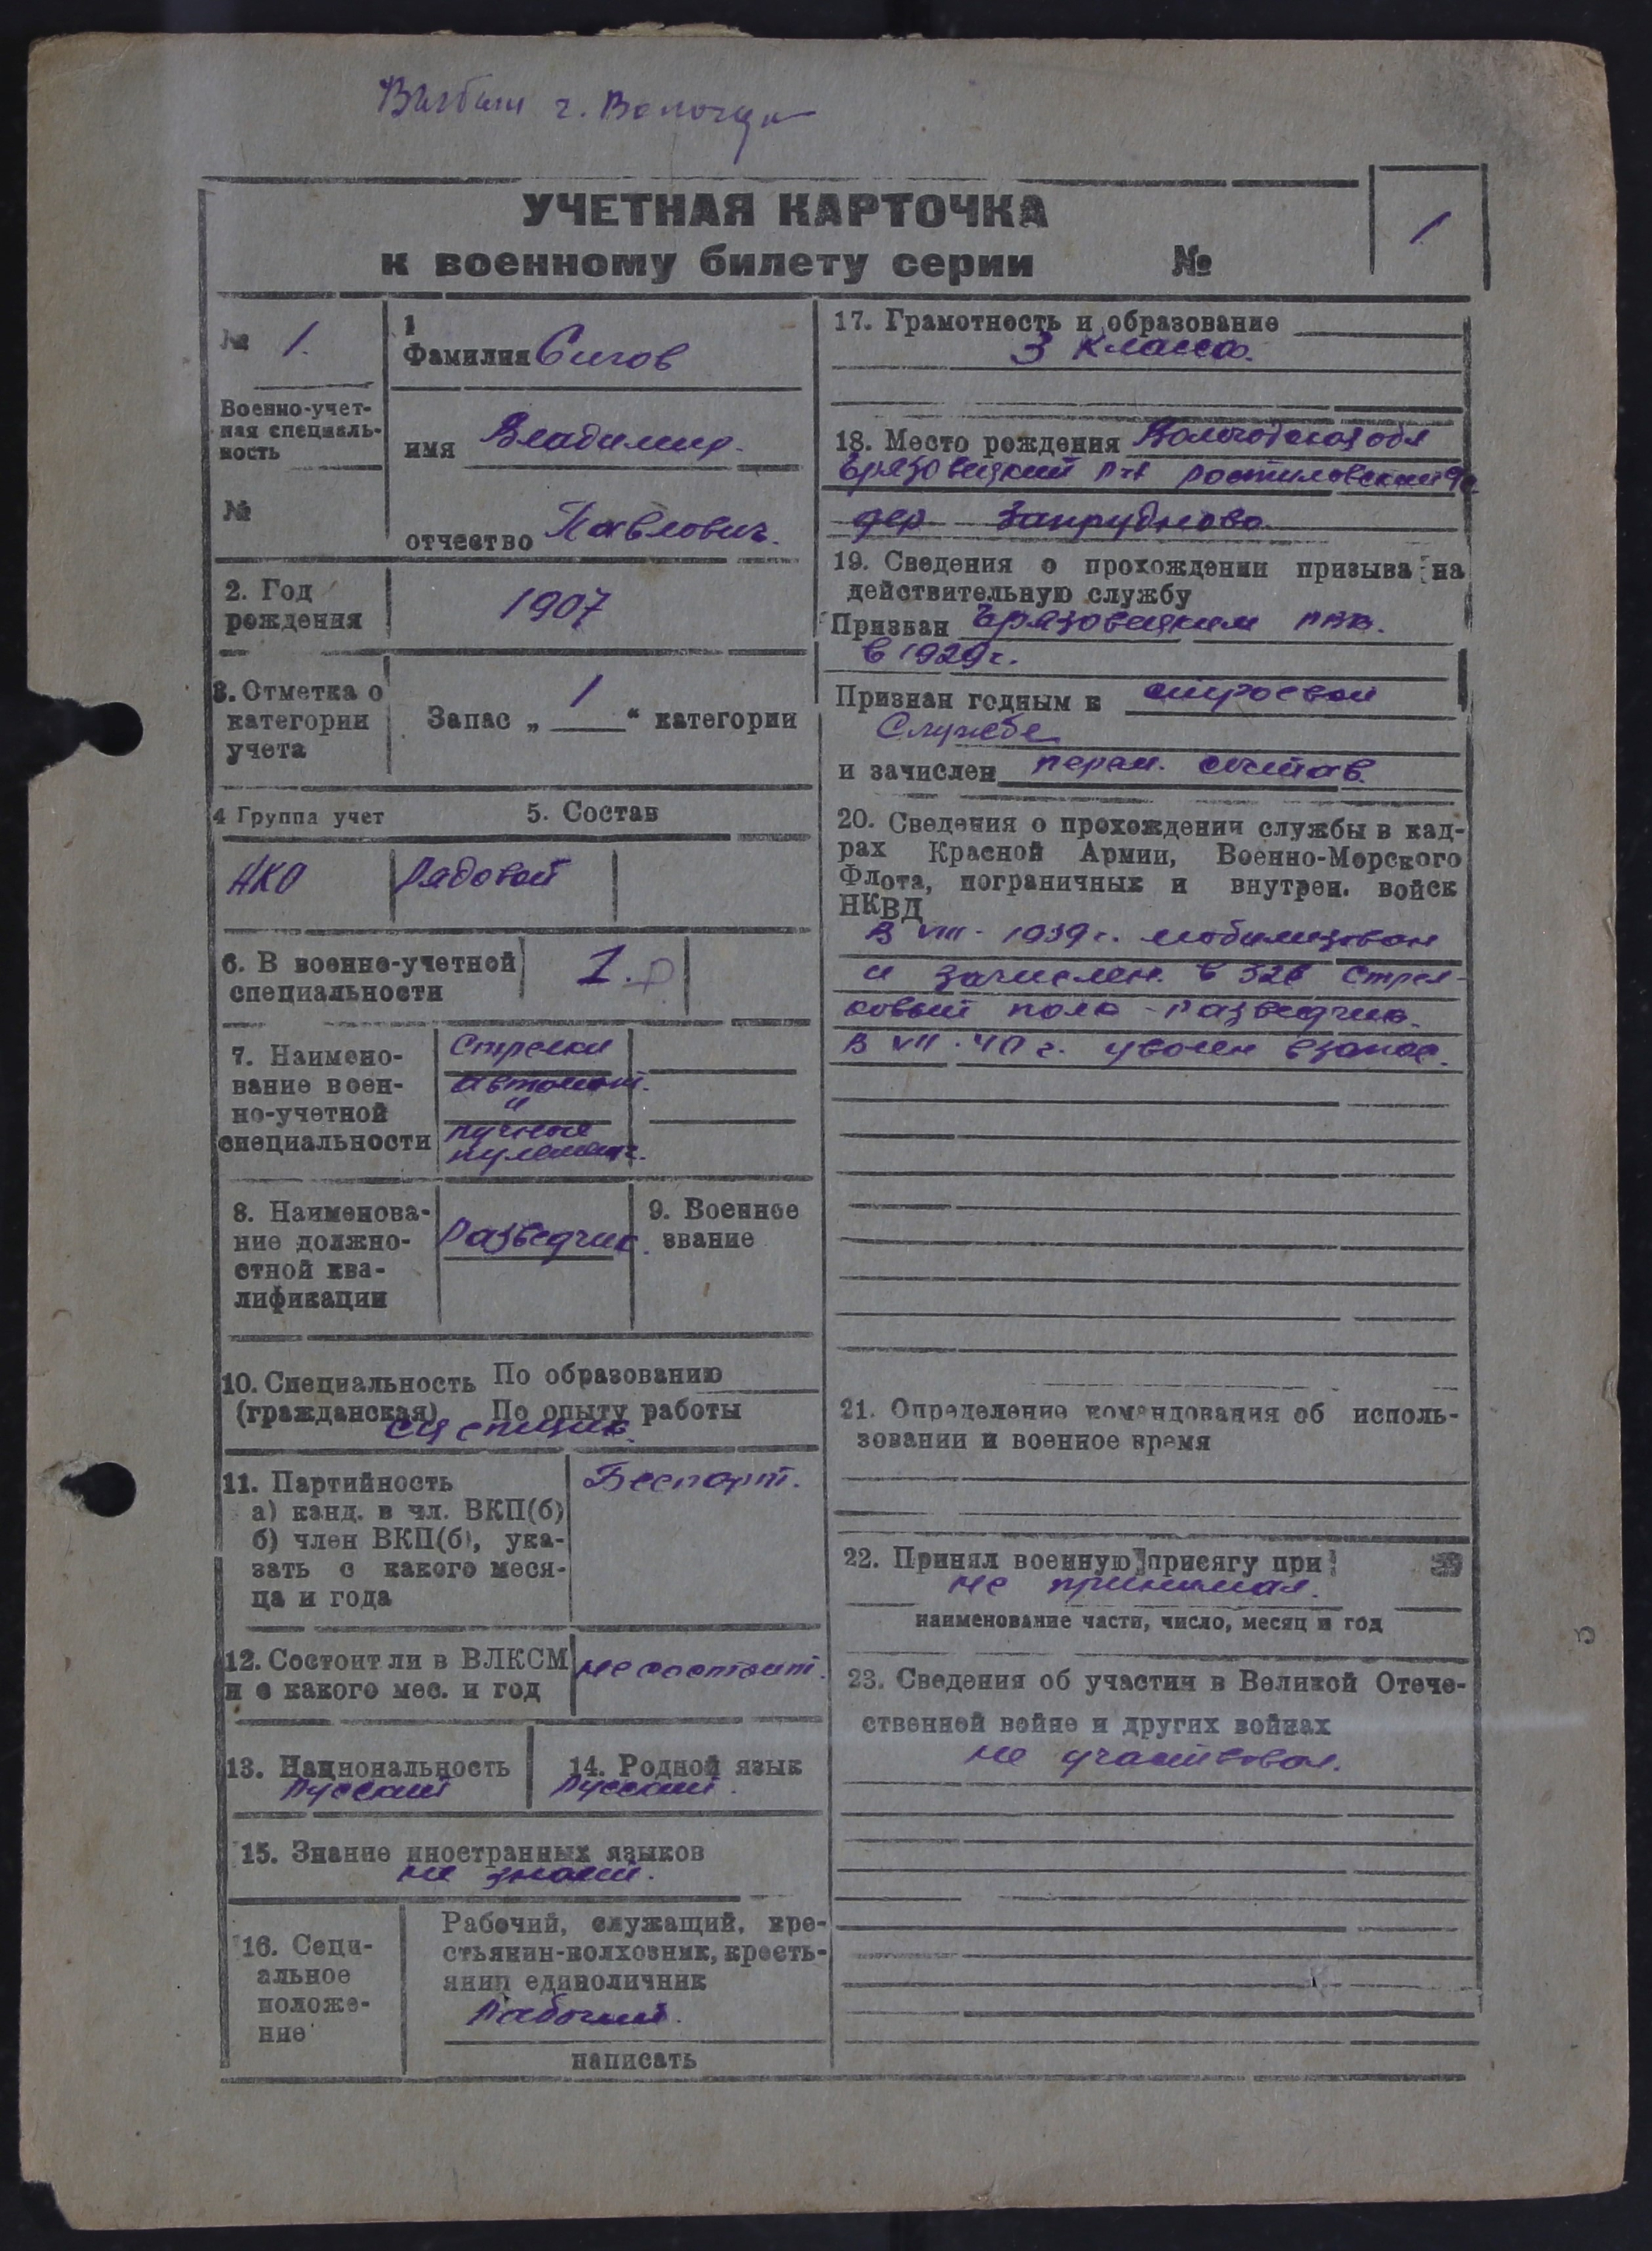 Выбыл г. Вологда
УЧЕТНАЯ КАРТОЧКА
к военному билету серии №
1
№ 1.
Военно-учет-
ная специаль-
ность
№
1
Фамилия Сигов
имя Владимир.
отчество Павлович.
2. Год
рождения
1907
3. Отметка о
категории
учета
Запас „ 1 “ категории
4 Группа учет
5. Состав
НКО
Рядовой
6. В военно-учетной
специальности
1.
7. Наимено-
вание воен-
но-учетной
специальности
Стрелки
автомат.
и
ручные
пулеметч.
8. Наименова-
ние должно-
стной ква-
лификации
Разведчик.
9. Военное
звание
10. Специальность По образованию
(гражданская) По опыту работы
сцепщик.
11. Партийность
а) канд. в чл. ВКП(б)
б) член ВКП(б), ука-
зать с какого меся-
ца и года
Беспарт.
12. Состоит ли в ВЛКСМ
и с какого мес. и год
не состоит.
13. Национальность
Русский
14. Родной язык
Русский.
15. Знание иностранных языков
не знает.
16. Соци-
альное
положе-
ние
Рабочий, служащий, кре-
стьянин-колхозник, кресть-
янин единоличник
Рабочий.
написать
17. Грамотность и образование
3 класса.
18. Место рождения Вологодская обл
Грязовецкий р-н Ростиловский
дер Запрудново
19. Сведения о прохождении призыва на
действительную службу
Призван Грязовецким РВК.
в 1929 г.
Признан годным к строевой
Службе
и зачислен перем. состав.
20. Сведения о прохождении службы в кад-
рах Красной Армии, Военно-Морского
Флота, пограничных и внутрен. войск
НКВД
В VIII - 1939 г. мобилизован
и зачислен. в 326 Стрел-
ковый полк - разведчик.
В VII - 40 г. уволен в запас.
21. Определение командования об исполь-
зовании и военное время
22. Принял военную присягу при
не принимал.
наименование части, число, месяц и год
23. Сведения об участии в Великой Отече-
ственной войне и других войнах
не участвовал.